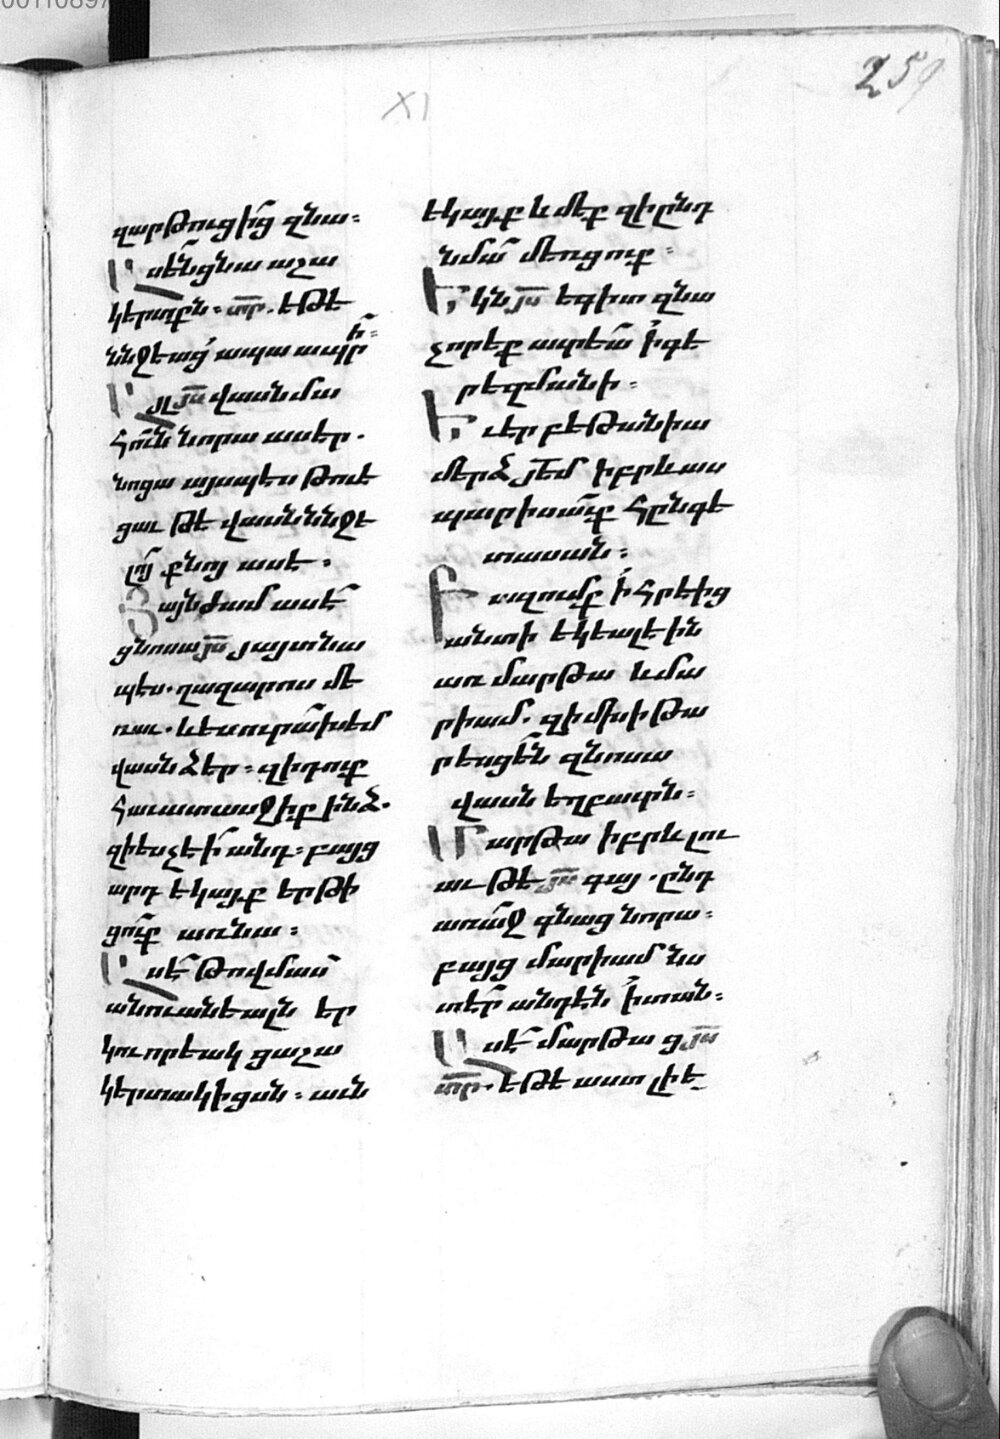 00110897
259
XI
զարթուցից զնա։
Ասեն ցնա աշա
կերտքն։ տր. եթէ
ննջեաց ապա ապրի։
Այլ յս վասն մա
հուն նորա ասէր.
նոցա այսպէս թուէ
ցաւ թէ վասն ննջէ
լոյ քնոյ ասէ։
Յայնժամ ասէ
ցնոսա յս յայտնա
պես. ղազարոս մե
ռաւ. և ես ուրախ եմ
վասն ձեր։ զի դուք
հաւատասջիք ինձ.
զի ես չէի անդ։ բայց
արդ եկայք երթի
ցուք առ նա։
Ասէ թովմաս
անուանեալն եր
կուորեակ ցաշա
կերտակիցսն։ աւն
եկայք և մեք զի ընդ
նմա մեռցուք։
Եկն յս եգիտ զնա
չորեք աւրեա ի գե
րեզմանի։
Եւ էր բեթանիա
մերձ յեմ իբրև աս
պարիսաւք հընգե
տասան։
Բազումք ի հրէից
անտի եկեալ էին
առ մարթա և մա
րիամ. զի մխիթա
րեսցեն զնոսա
վասն եղբաւրն։
Մարթա իբրև լու
աւ թէ յս գայ. ընդ
առաջ գնաց նորա։
բայց մարիամ նս
տէր անդէն ի տան։
Ասէ մարթա ցյս
տր. եթէ աստ լիէ